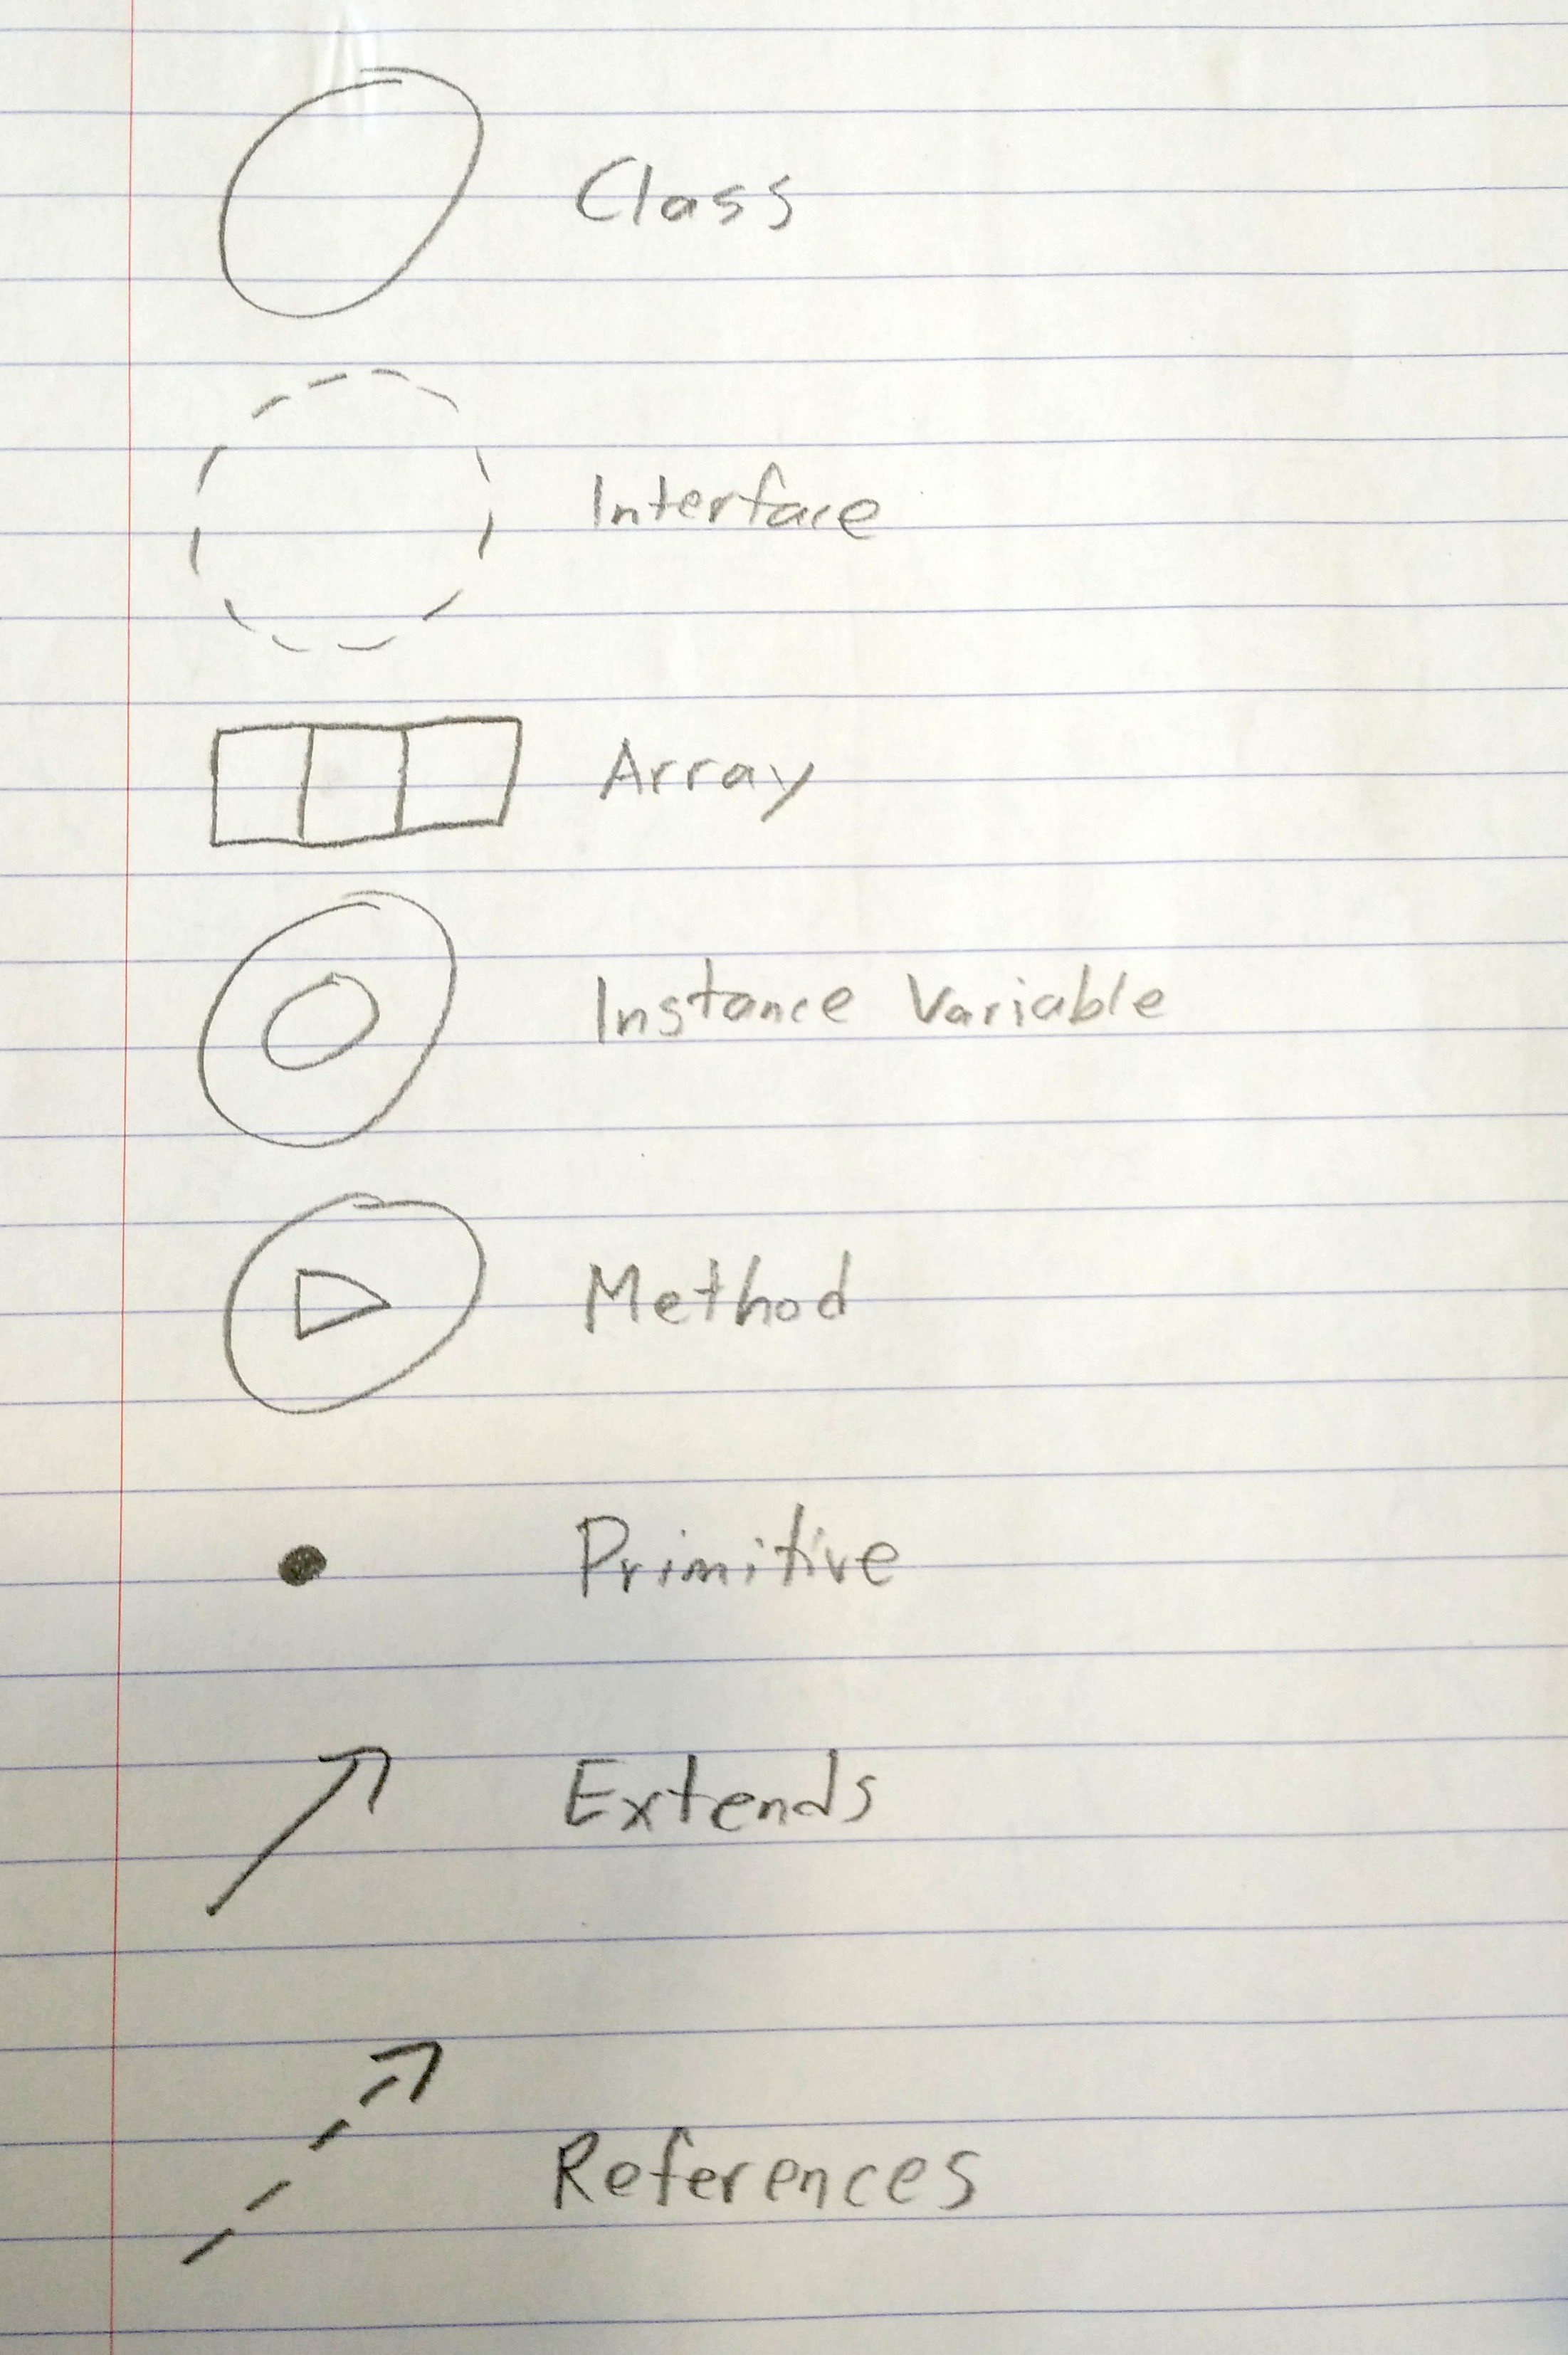 Class
Interface
Array
Instance Variable
Method
Primitive
Extends
References